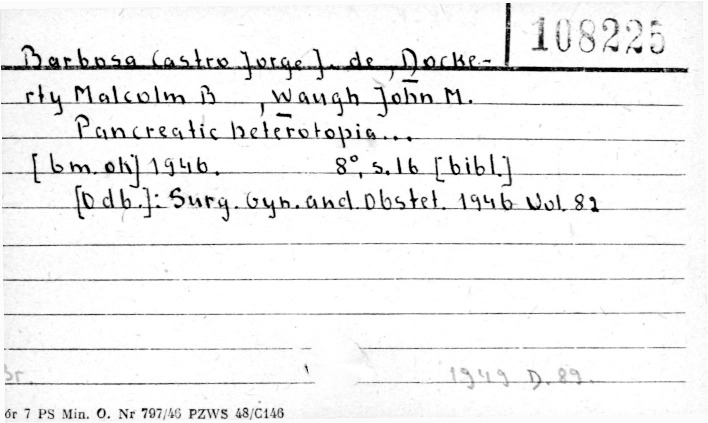 108225
Barbosa Castro Jorge J. de, Docke-
rty Malcolm B , Waugh John M.
Pancreatic heterotopia...
[b m. ok] 1946. 8°, s. 16 [bibl.]
[Odb.]: Surg. Gyn. and. Obstet. 1946 Vol. 82
Br. 1949 D. 89.
ór 7 PS Min. O. Nr 797/46 PZWS 48/C146